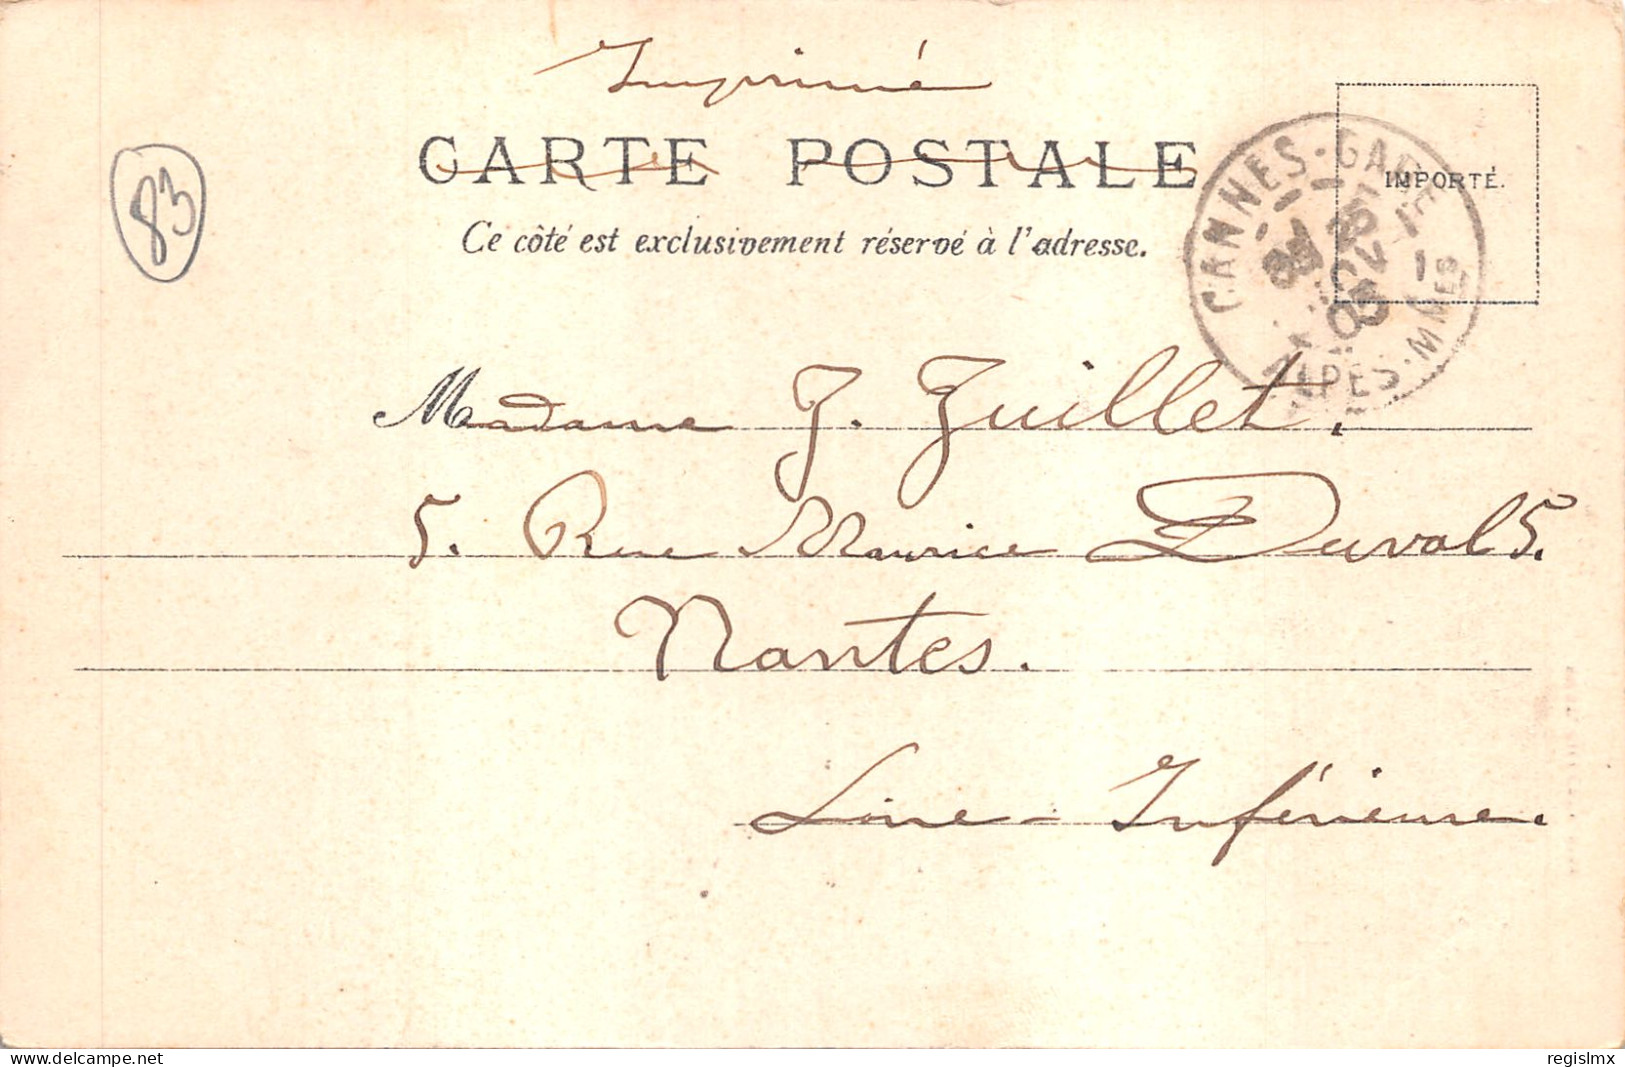 Imprimé
CARTE POSTALE
Ce côté est exclusivement réservé à l'adresse.
IMPORTÉ.
CANNES-GARE
ALPES-MMES
83
Madame J. Juillet.
5. Rue Maurice Duval 5.
Nantes.
Loire-Inférieure.
www.delcampe.net
regislmx